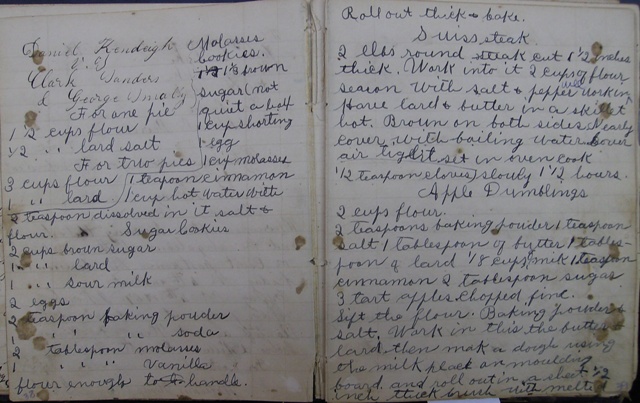 Daniel Kendeigh
& G
Clark Sanders
& George
For one pie
1 1/2 cups flour
1/2 " " lard salt
For two pies
3 cups flour
1 " " lard
Molasses
Cookies.
1 1/2 brown
sugar (not
quiet a half
1 cup shorting
1 egg
1 cup molasses
1 teaspoon cinnamon
1 cup hot water with
2 teaspoon dissolved in it salt &
flour.
Sugar Cookies
2 cups brown sugar
1 " " lard
1 " " sour milk
2 eggs
2 teaspoon baking powder
1 " " " soda
2 tablespoon molasses
1 " " vanilla
flour enough to handle.
Roll out thick & bake.
Suiss steak
2 lbs round steak cut 1 1/2 inches
thick. Work into it 2 cups of flour
season with salt & pepper well workin
have lard & butter in a skillet
hot. Brown on both sides Nearly
cover with boiling water cover
air tight set in oven cook
1/2 teaspoon cloves slowly 1 1/2 hours.
Apple Dumblings
2 cups flour.
2 teaspoons baking powder 1 teaspoon
salt 1 tablespoon of butter 1 tables-
poon of lard 1/8 cup milk 1 teaspoon
cinnamon 2 tablespoon sugar
3 tart apples chopped fine.
Sift the flour. Baking powder &
salt, Work in this the butter &
lard then mak a dough using
the milk place on moulding
board and roll out in a sheet 1/2
inch thick brush with melted